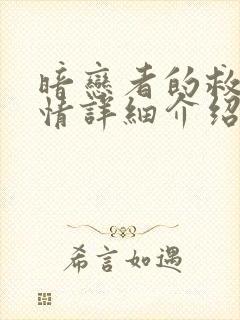 暗戀者的救
情詳細介紹
希言如遇